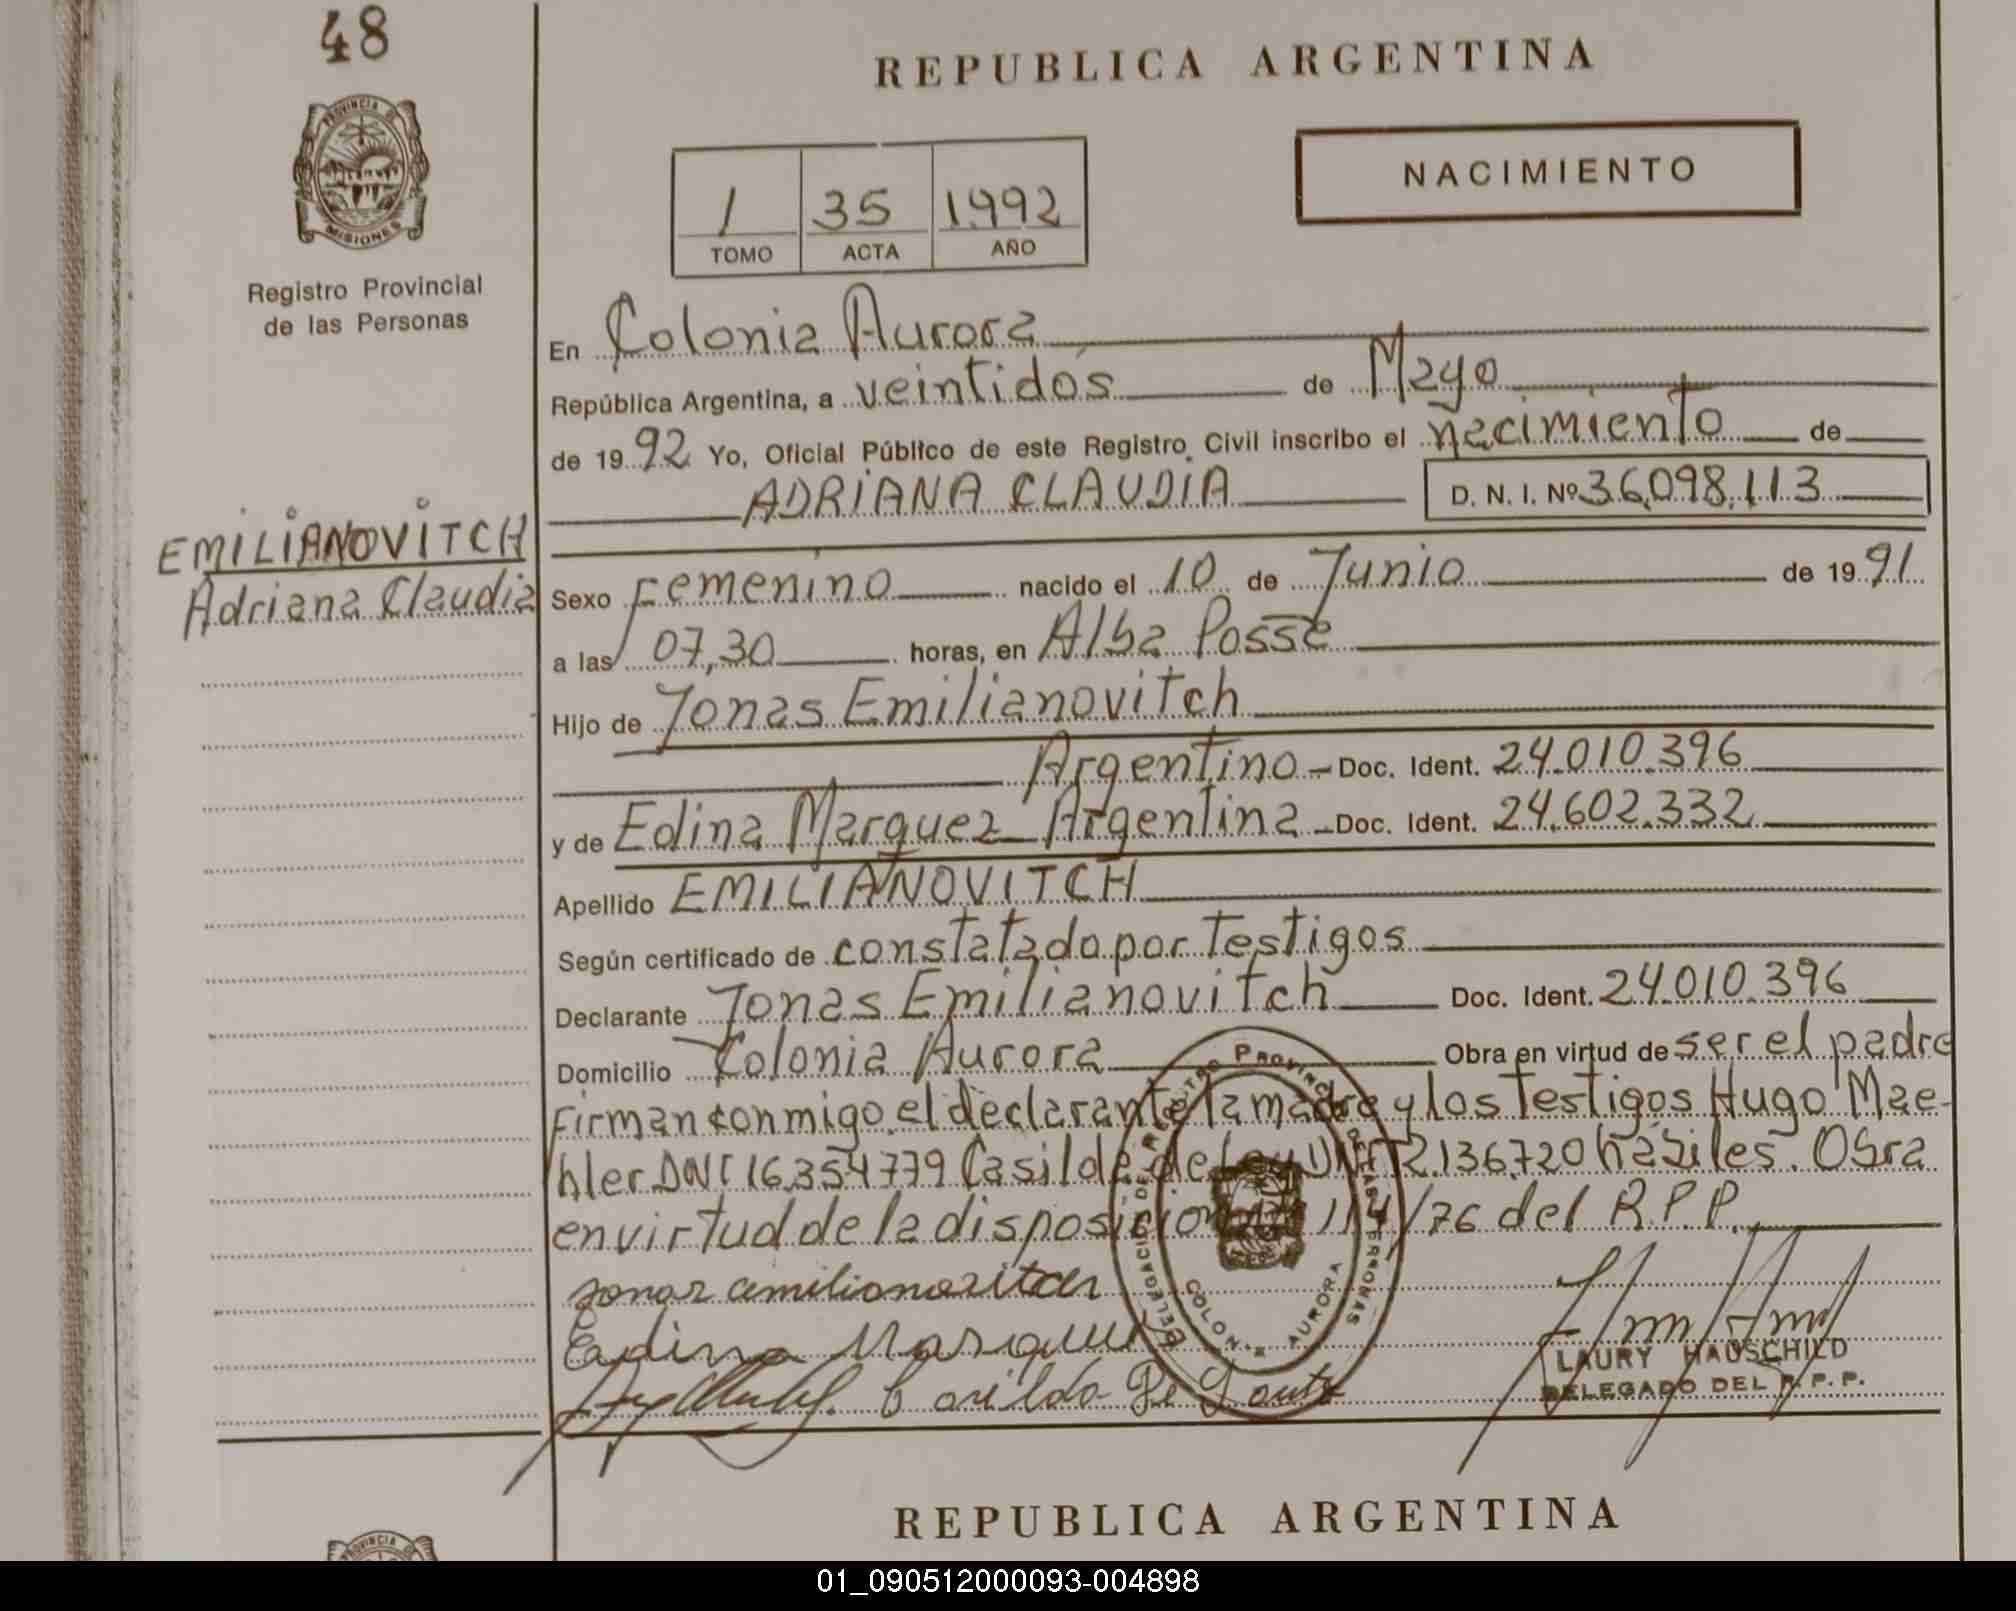 48
PROVINCIA D
MISIONES
Registro Provincial
de las Personas
EMILIANOVITCH
Adriana Claudia
REPUBLICA ARGENTINA
1 35 1992
TOMO ACTA AÑO
NACIMIENTO
En Colonia Aurora
República Argentina, a veintidós de Mayo
de 1992 Yo, Oficial Público de este Registro Civil inscribo el nacimiento de
ADRIANA CLAUDIA D. N. I. Nº 36,098,113
Sexo Femenino nacido el 10 de Junio de 1991
a las 07,30 horas, en Alba Posse
Hijo de Jonas Emilianovitch
Argentino - Doc. Ident. 24.010.396
y de Edina Marquez Argentina - Doc. Ident. 24.602.332
Apellido EMILIANOVITCH
Según certificado de constatado por testigos
Declarante Jonas Emilianovitch Doc. Ident. 24.010.396
Domicilio Colonia Aurora Obra en virtud de ser el padre
Firman conmigo el declarante la madre y los testigos Hugo Mae-
hler DNI 16.354779 Casilda de 2.136.720 hábiles. Obra
en virtud de la disposicion 114/76 del R.P.P.
DELEGACION DE REGISTRO PROVINCIAL DE LAS PERSONAS
COLONIA AURORA
Edina Marquez
Casilda De
LAURY HAUSCHILD
DELEGADO DEL R.P.P.
REPUBLICA ARGENTINA
PROVINCIA D
01_090512000093-004898